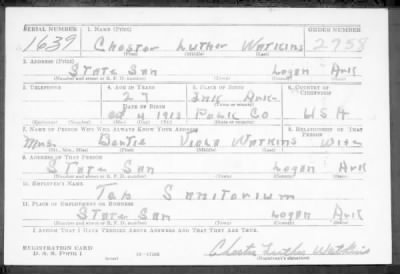 SERIAL NUMBER 1. NAME (Print) ORDER NUMBER
1639 Chester Luther Watkins 2958
(First) (Middle) (Last)
2. ADDRESS (Print)
State San Logan Ark
(Number and street or R. F. D. number) (Town) (County) (State)
3. TELEPHONE 4. AGE IN YEARS 5. PLACE OF BIRTH 6. COUNTRY OF CITIZENSHIP
27 Ark
DATE OF BIRTH (Town or county)
Oct 4 1913 Polk Co USA
(Mo.) (Day) (Yr.) (State or country)
7. NAME OF PERSON WHO WILL ALWAYS KNOW YOUR ADDRESS 8. RELATIONSHIP OF THAT PERSON
Mrs. Viola Watkins Wife
(Mr., Mrs., Miss) (First) (Middle) (Last)
9. ADDRESS OF THAT PERSON
State San Logan Ark
(Number and street or R. F. D. number) (Town) (County) (State)
10. EMPLOYER'S NAME
Teb Sanitorium
11. PLACE OF EMPLOYMENT OR BUSINESS
State San Logan Ark
(Number and street or R. F. D. number) (Town) (County) (State)
I AFFIRM THAT I HAVE VERIFIED ABOVE ANSWERS AND THAT THEY ARE TRUE.
REGISTRATION CARD
D. S. S. Form 1 Chester Luther Watkins
(over) (Registrant's signature)